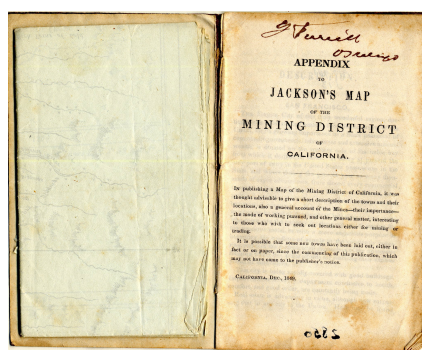 APPENDIX
TO
JACKSON'S MAP
OF THE
MINING DISTRICT
OF
CALIFORNIA.
In publishing a Map of the Mining District of California, it was
thought advisable to give a short description of the towns and their
locations, also a general account of the Mines—their importance—
the mode of working pursued, and other general matter, interesting
to those who wish to seek out locations either for mining or
trading.
It is possible that some new towns have been laid out, either in
fact or on paper, since the commencing of this publication, which
may not have come to the publisher's notice.
California, Dec., 1849.